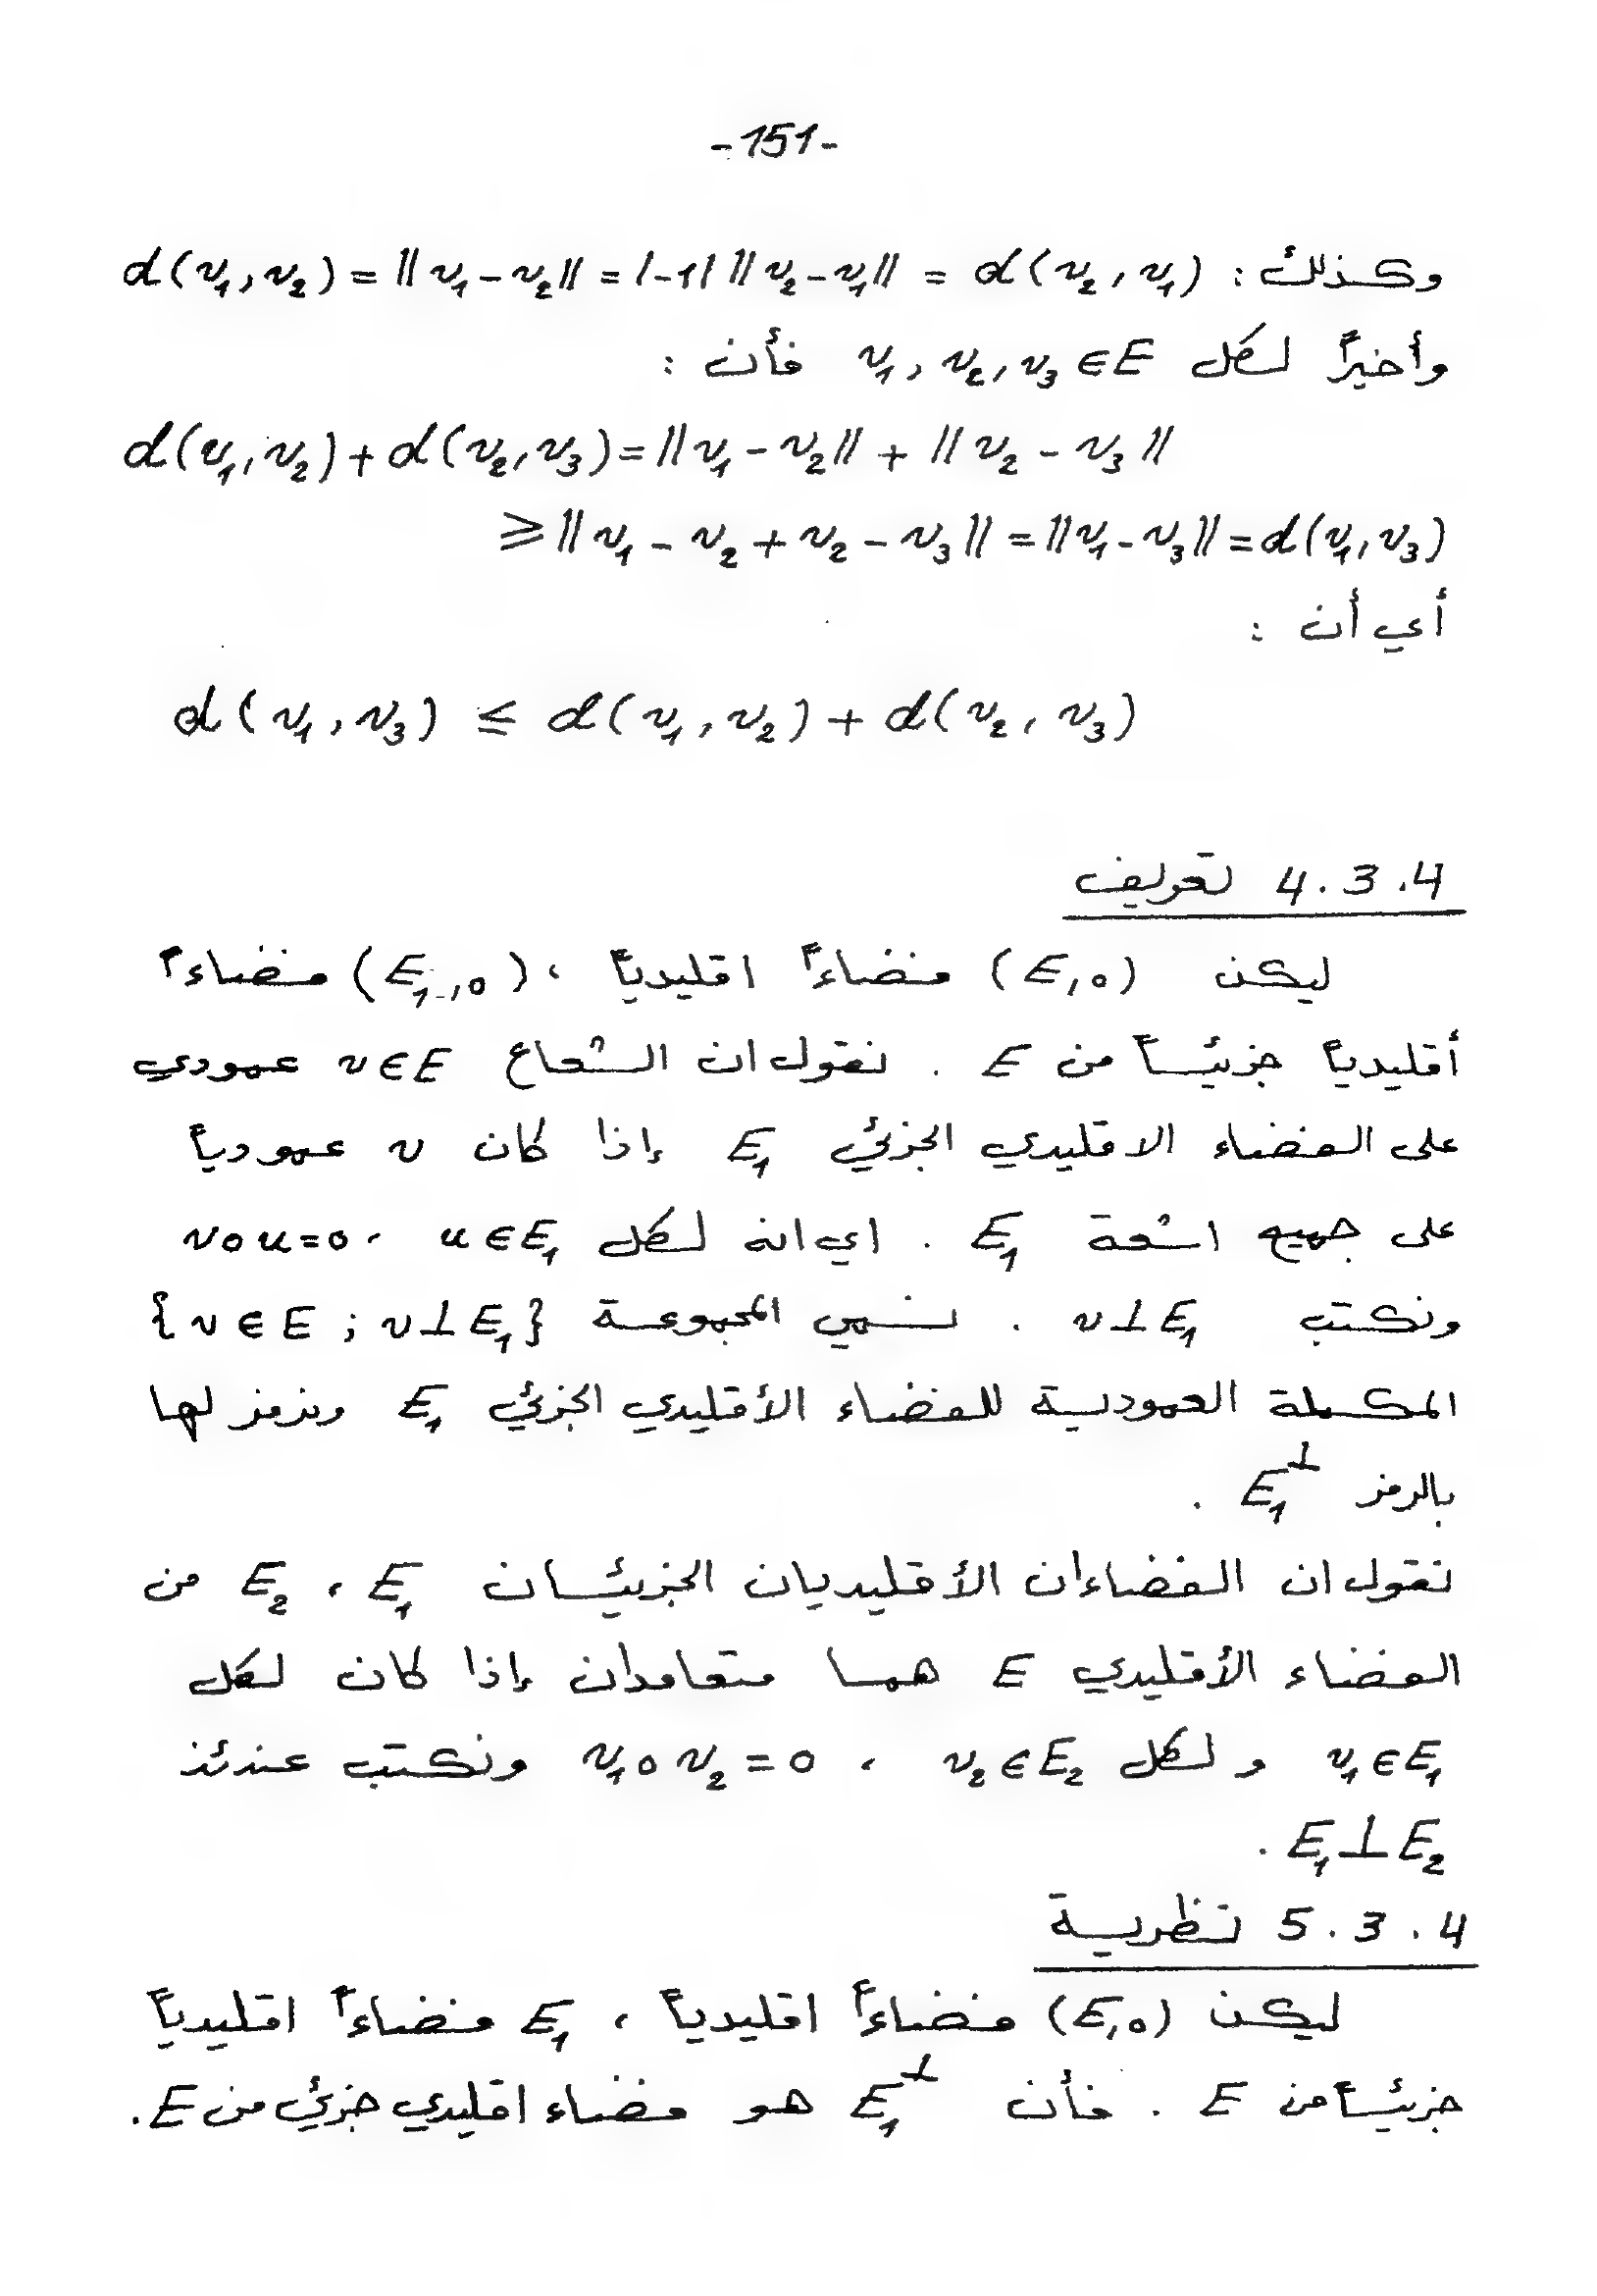 -151-
وكذلك : d(v₁,v₂) = ||v₁-v₂|| = |-1| ||v₂-v₁|| = d(v₂,v₁)
وأخيراً لكل v₁, v₂, v₃ ∈ E فأن :
d(v₁,v₂)+d(v₂,v₃)=||v₁-v₂|| + ||v₂-v₃||
≥||v₁-v₂+v₂-v₃||=||v₁-v₃||=d(v₁,v₃)
أي أن :
d(v₁,v₃) ≤ d(v₁,v₂)+d(v₂,v₃)
4.3.4 تعريف
ليكن (E,o) فضاءاً اقليدياً ، (E₁,o) فضاءاً
أقليدياً جزئيـاً من E . نقول ان الشعاع v∈E عمودي
على الفضاء الاقليدي الجزئي E₁ إذا كان v عمودياً
على جميع اشعة E₁ . اي انه لكل u∈E₁ ، vou=0
ونكتب v⊥E₁ . نسمي المجموعة {v∈E ; v⊥E₁}
المكملة العمودية للفضاء الأقليدي الجزئي E₁ ونرمز لها
بالرمز E₁^⊥ .
نقول ان الفضاءان الأقليديان الجزيئـان E₁ ، E₂ من
الفضاء الأقليدي E هما متعامدان إذا كان لكل
v₁∈E₁ و لكل v₂∈E₂ ، v₁ov₂=0 ونكتب عندئذ
E₁⊥E₂ .
5.3.4 نظرية
ليكن (E,o) فضاءاً اقليدياً ، E₁ فضاءاً اقليدياً
جزيئـاً من E . فأن E₁^⊥ هو فضاء اقليدي جزئي من E.